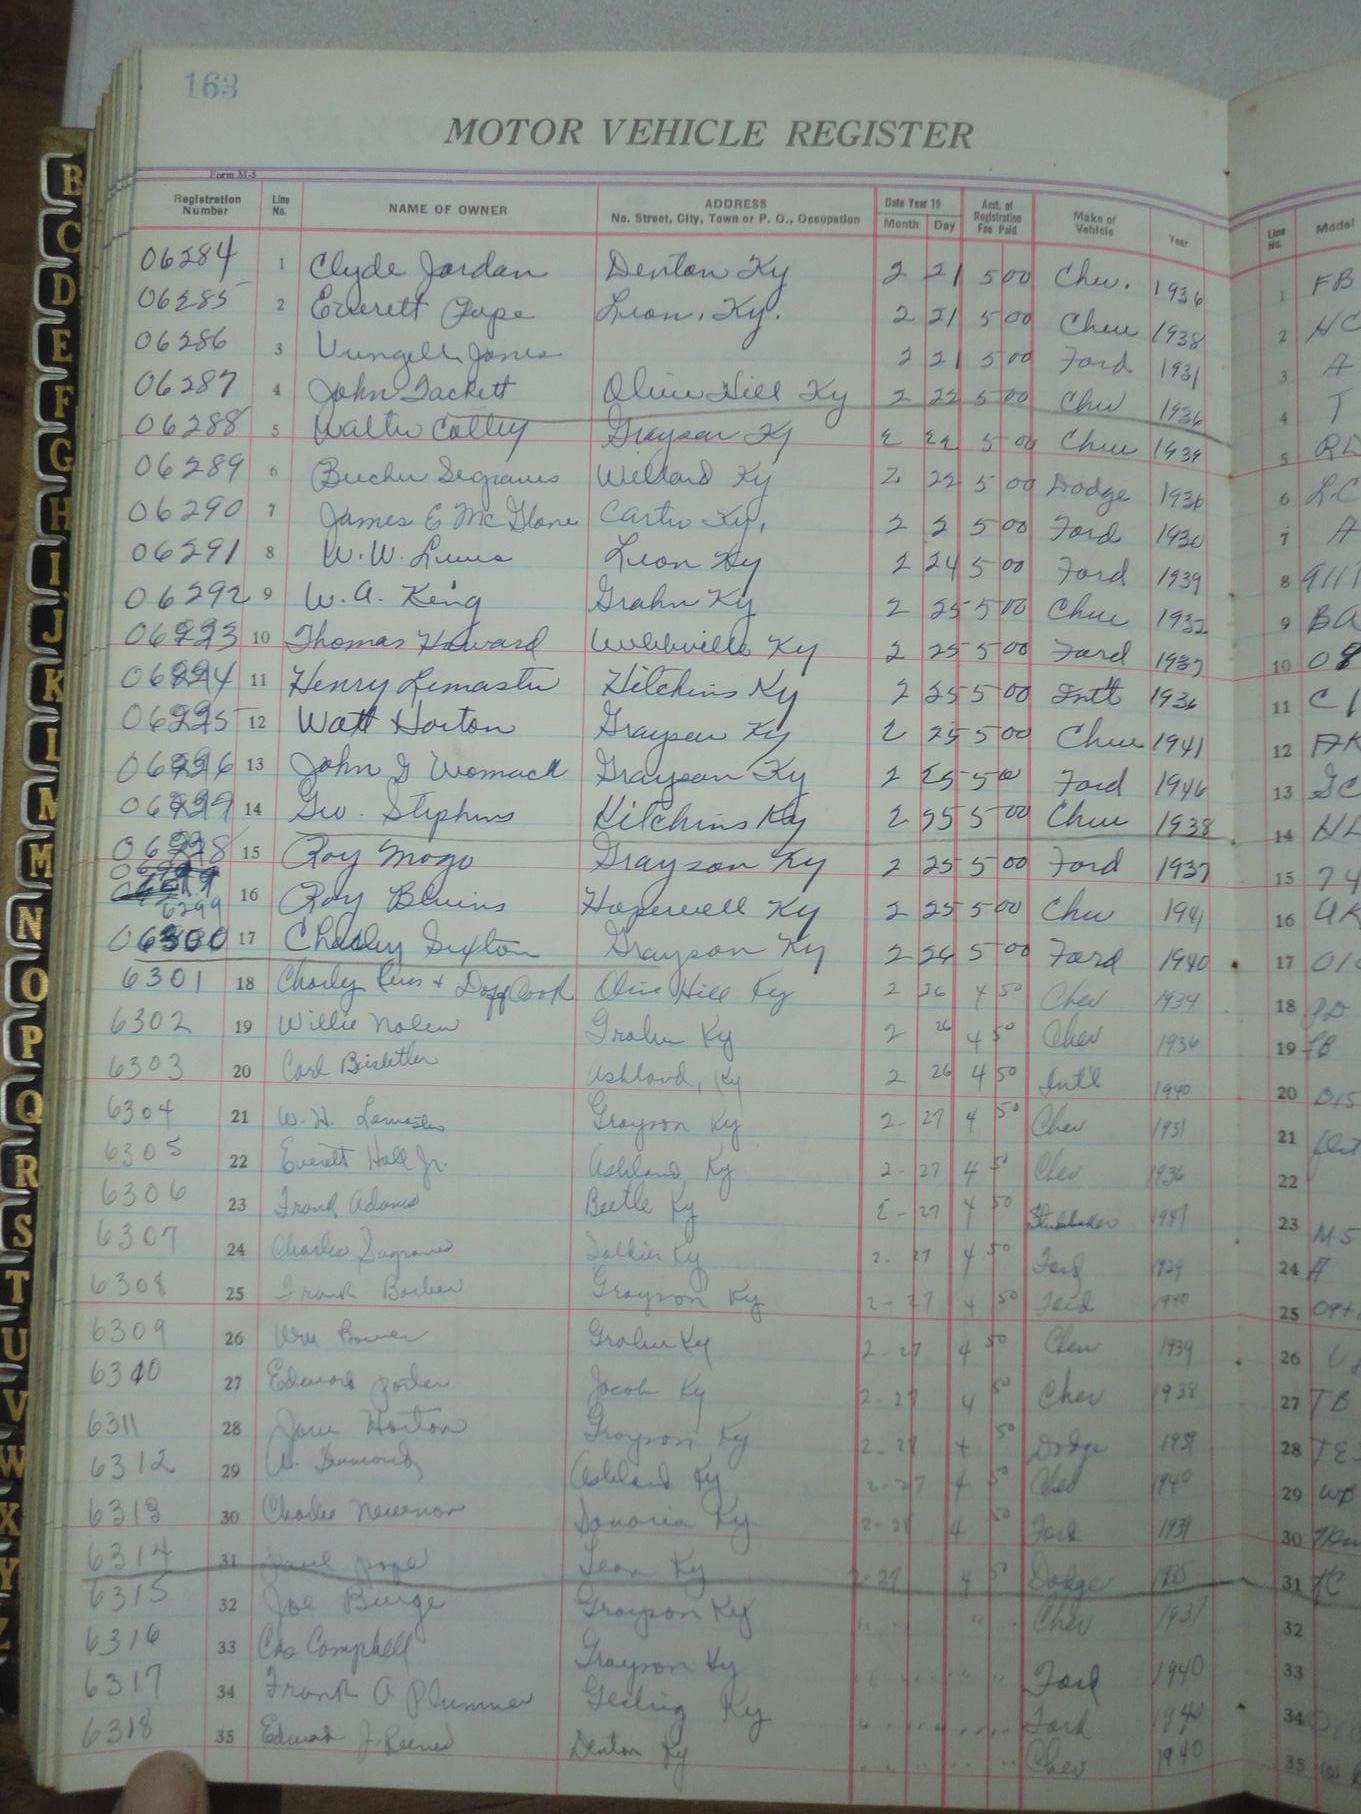 163
MOTOR VEHICLE REGISTER
Form M-5
Registration Number Line No. NAME OF OWNER ADDRESS No. Street, City, Town or P. O., Occupation Date Year 19 Month Day Amt. of Registration Fee Paid Make of Vehicle Year Line No. Model
06284 1 Clyde Jordan Denton Ky 2 21 5 00 Chev. 1936 1 FB
06285 2 Everett Pope Leon, Ky. 2 21 5 00 Chev 1938 2 HC
06286 3 Jones 2 21 5 00 Ford 1931 3 A
06287 4 John Tackett Olive Hill Ky 2 22 5 00 Chev 1936 4 T
06288 5 Walter Grayson Ky 2 22 5 00 Chev 1939 5
06289 6 Segraves Willard Ky 2 22 5 00 Dodge 1936 6 LC
06290 7 James E McGlone Carter Ky. 2 2 5 00 Ford 1930 7 A
06291 8 W. W. Lewis Leon Ky 2 24 5 00 Ford 1939 8
06292 9 W. A. King Grahn Ky 2 25 5 00 Chev 1932 9 BA
06293 10 Thomas Howard Webbville Ky 2 25 5 00 Ford 1937 10 08
06294 11 Henry Lemaster Hitchins Ky 2 25 5 00 Int'l 1936 11 C1
06295 12 Watt Horton Grayson Ky 2 25 5 00 Chev 1941 12 AK
06296 13 John G Womack Grayson Ky 2 25 5 00 Ford 1946 13 GC
06297 14 Geo. Stephens Hitchins Ky 2 25 5 00 Chev 1938 14 HA
06298 15 Roy Mozo Grayson Ky 2 25 5 00 Ford 1937 15 74
6299 16 Roy Blevins Hopewell Ky 2 25 5 00 Chev 1941 16 AK
06300 17 Charley Sexton Grayson Ky 2 26 5 00 Ford 1940 17 01
6301 18 Charly + Cook Olive Hill Ky 2 26 4 50 Chev 1939 18
6302 19 Willie Nolen Grahn Ky 2 26 4 50 Chev 1936 19 FB
6303 20 Carl Ashland, Ky 2 26 4 50 Int'l 1940 20 D15
6304 21 W. H. Lemaster Grayson Ky 2 - 27 4 50 Chev 1931 21
6305 22 Everett Hall Jr. Ashland Ky 2 - 27 4 50 Chev 1936 22
6306 23 Frank Adams Beetle Ky 2 - 27 4 50 Studebaker 1947 23 M5
6307 24 Charles Segraves Ky 2 - 27 4 50 Ford 1929 24 A
6308 25 Frank Barber Grayson Ky 2 - 27 4 50 Ford 1940 25
6309 26 Wm Grahn Ky 2 - 27 4 50 Chev 1939 26
6310 27 Edward Jacob Ky 2 - 27 4 50 Chev 1938 27 TB
6311 28 Horton Grayson Ky 2 - 27 4 50 Dodge 28
6312 29 Ashland Ky 2 - 27 4 50 Chev 1940 29 WB
6313 30 Charlie Newman Ky 2 - 28 4 50 Ford 1939 30
6314 31 Paul Pope Leon Ky 2 - 29 4 50 Dodge 31
6315 32 Joe Burge Grayson Ky " " Chev 1937 32
6316 33 Chas Campbell Grayson Ky " " Ford 1940 33
6317 34 Frank A Plummer Gesling Ky " " Ford 1940 34
6318 35 Edward J. Denton Ky " " Chev 1940 35
B
C
D
E
F
G
H
I
J
K
L
M
M
N
O
P
Q
R
S
T
U
V
W
X
Y
Z